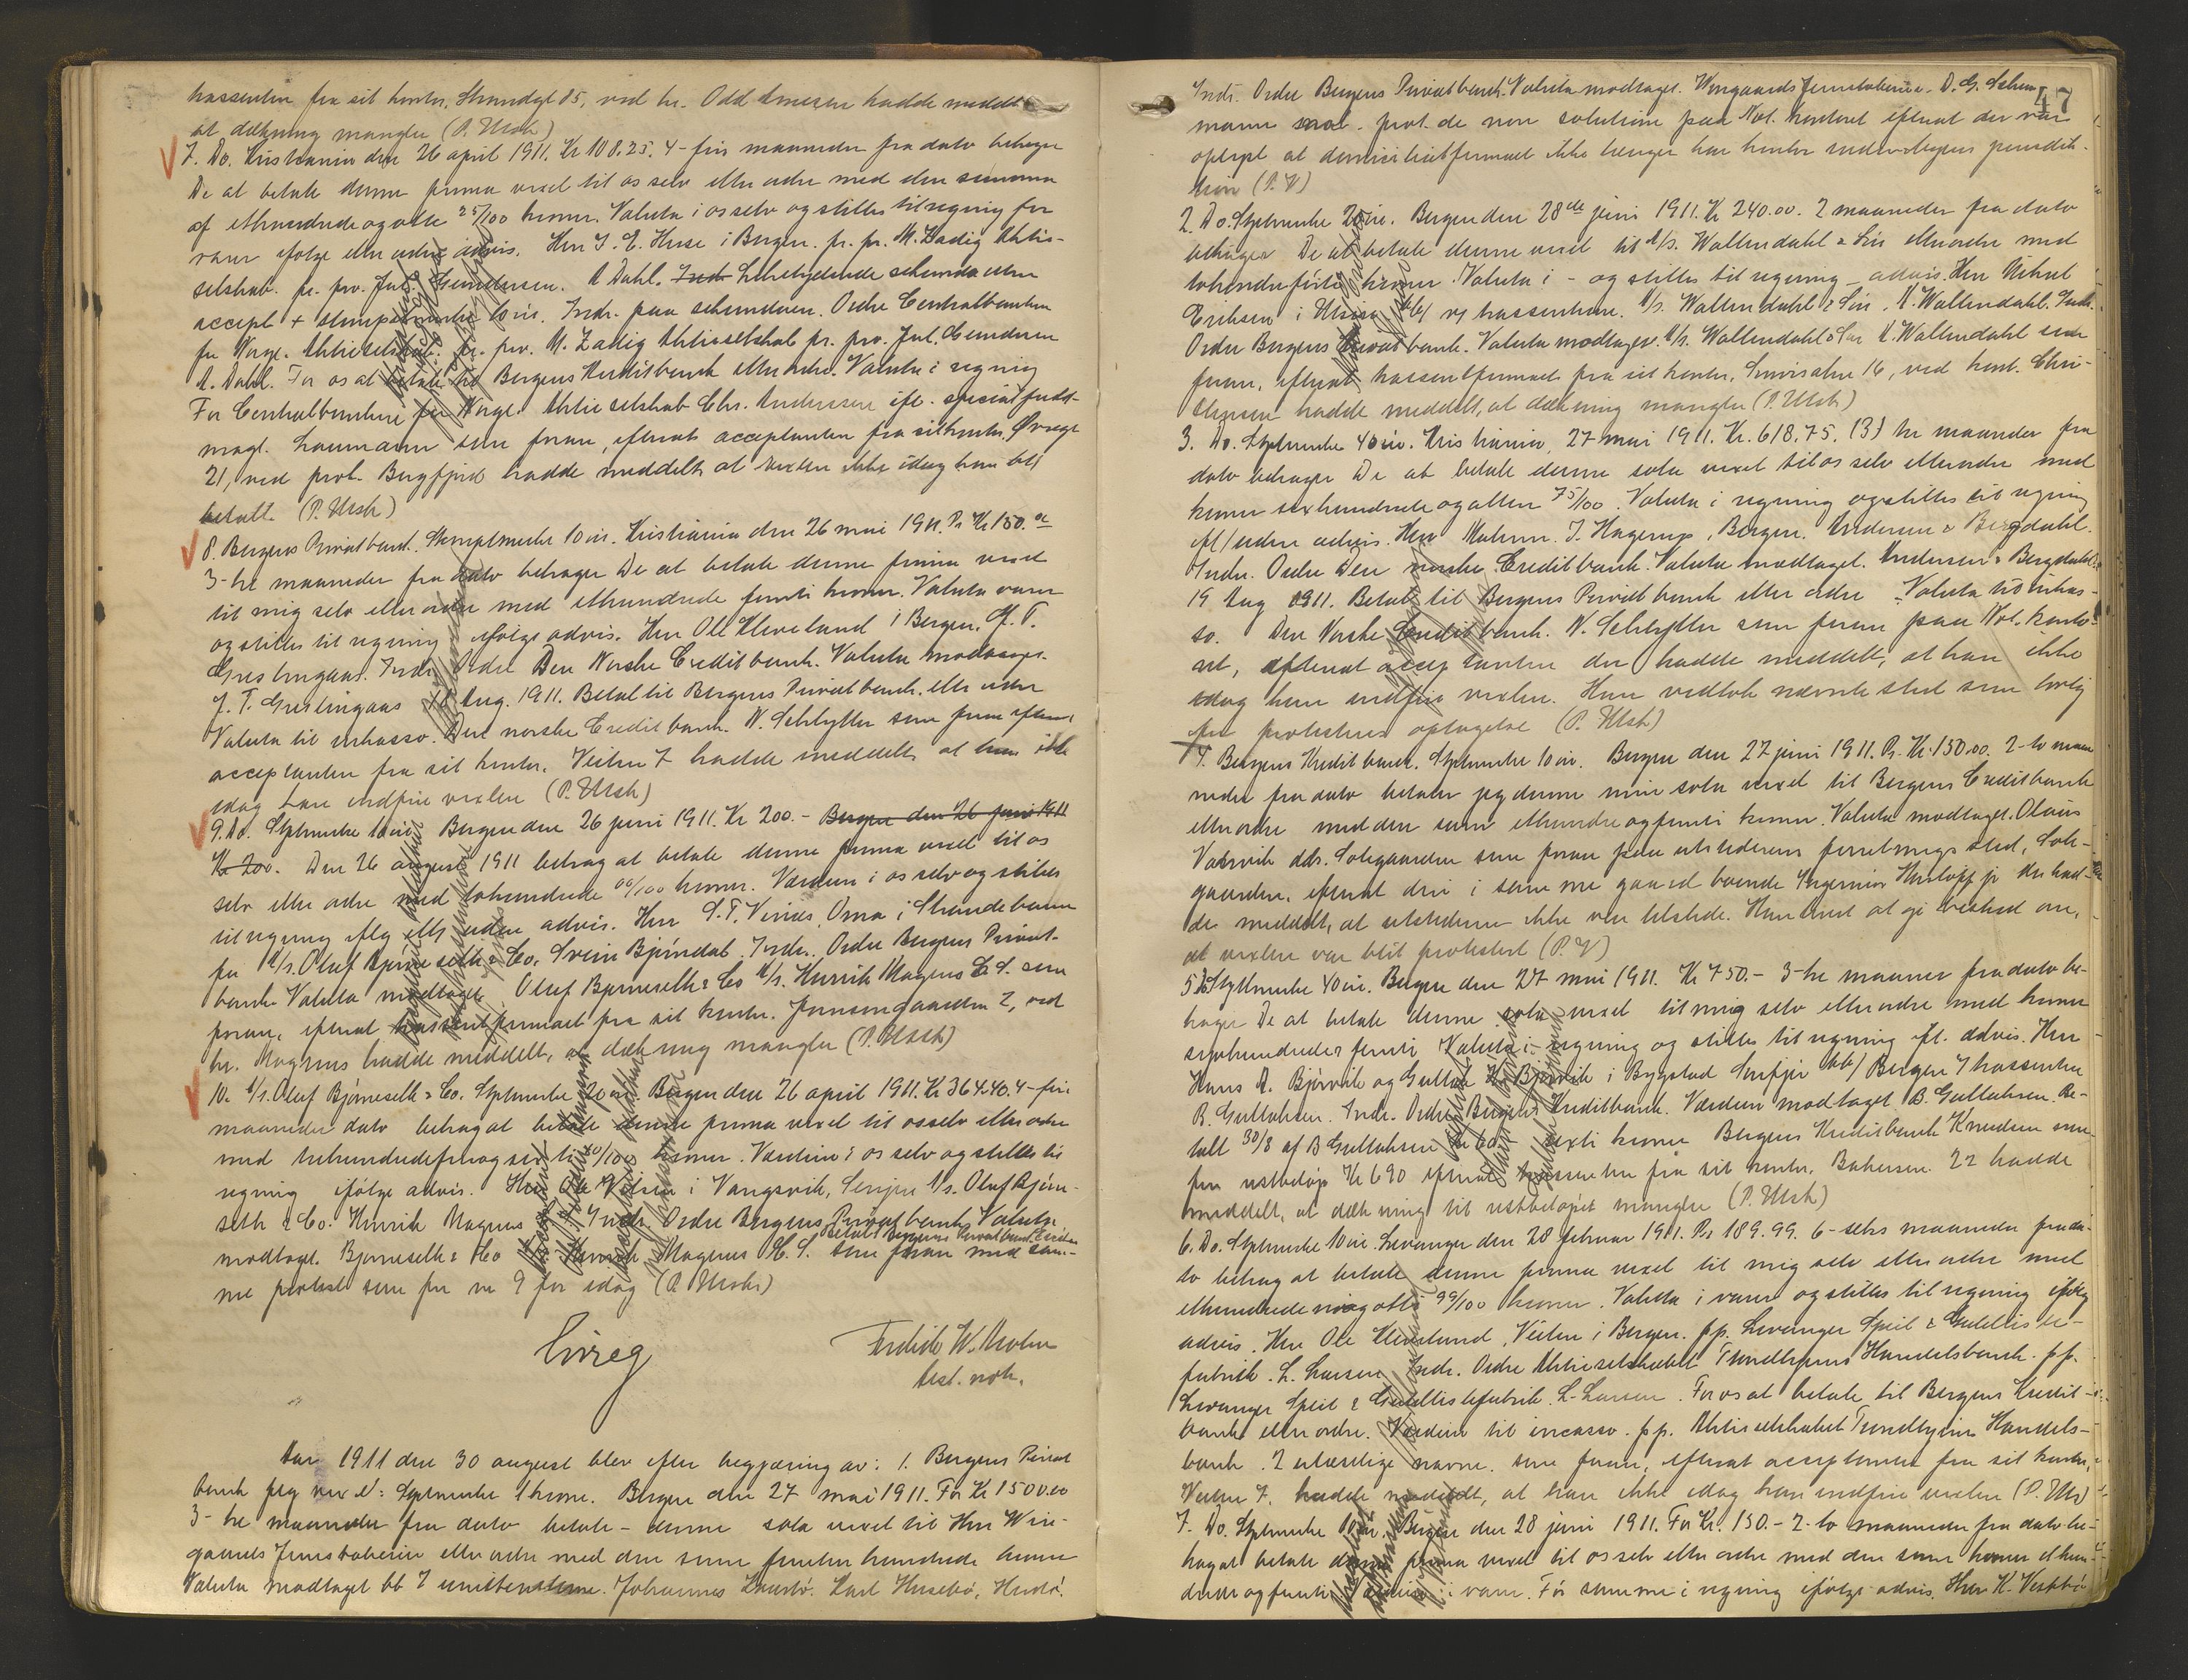 kassenten fra sit kontor, Strandgt 85, ved hr. Odd Arnesen hadde meddelt
at dækning mangler (P. Utsh)
7. Do. Kristiania den 26 april 1911. Kr 108.25. 4-fire maaneder fra dato behager
De at betale denne prima vexel til os selv eller ordre med den summa
af ethundrede og otte 25/100 kroner. Valuta i os selv og stilles til regning for
varer ifølge eller uden advis. Herr J. E. Huse i Bergen. pr. pr. M. Zadig Aktie-
selskab. pr. pro. Jul. Gundersen. A Dahl. Indr. Likelydende sekunda uten
accept + stempelmerke 10 øre. Indr. paa sekundaen. Ordre Centralbanken
for Norge. Aktieselskab. pr. pro. M. Zadig Aktieselskab pr. pro. Jul. Gundersen
A. Dahl. For os at betale til Bergens Kreditbank eller ordre. Valuta i regning
For Centralbanken for Norge. Aktieselskab Chr. Anderssen ifl. specialfuld-
magt. Laumann sen foran, efterat acceptanten fra sit kontor, Øvregt
21, ved prok. Bergfjord hadde meddelt at vexlen ikke idag kan bli
betalt. (P. Utsh)
8. Bergens Privatbank. Stempelmerke 10 øre. Kristiania den 26 mai 1911. Pr Kr 150.00
3-tre maaneder fra dato behager De at betale denne prima vexel
til mig selv eller ordre med ethundrede femti kroner. Valuta varer
og stilles til regning ifølge advis. Herr Ole Kleveland i Bergen. J. T.
Greslingaas. Indr. Ordre Den Norske Creditbank. Valuta modtaget.
J. T. Greslingaas 18 Aug. 1911. Betal til Bergens Privatbank eller ordre
Valuta til inkasso. Den norske Creditbank. N. Schlytter sen foran efterat
acceptanten fra sit kontor, Veiten 7 hadde meddelt, at han ikke
idag kan indfrie vexlen (P. Utsh)
9. Do. Stplmerke 10 øre Bergen den 26 juni 1911. Kr 200.- Bergen den 26 juni 1911
Kr 200. Den 26 august 1911 behag at betale denne prima vexel til os
selv eller ordre med tohundrede 00/100 kroner. Værdien i os selv og stilles
til regning iflg eller uden advis. Herr S. T. Vinæs, Oma i Strandebarm
for A/s. Oluf Bjørneseth & Co. Svein Bjørndal. Indr. Ordre Bergens Privat-
bank Valuta modtaget. Oluf Bjørneseth & Co A/s. Henrik Magnus L. S. sen
foran, efterat kassentfirmaet fra sit kontor. Jonsongaarden 2, ved
hr. Magnus hadde meddelt, at dækning mangler (P. Utsh)
10. A/s. Oluf Bjørneseth & Co. Stplmerke 20 øre Bergen den 26 april 1911. Kr 364.40. 4-fire
maaneder dato behag at betale denne prima vexel til os selv eller ordre
med trehundrede fire og sexti 40/100 kroner. Værdien i os selv og stilles til
regning ifølge advis. Herr Ole Nilsen i Vangsvik, Senjen A/s. Oluf Bjørne-
seth & Co. Henrik Magnus Indr. Ordre Bergens Privatbank Valuta
modtaget. Bjørneseth & Co Henrik Magnus H. S. sen foran med sam-
me protest som for nr 9 for idag (P. Utsh)
Fredrik W. Mohn
Aar 1911 den 30 august blev efter begjæring av: 1. Bergens Privat
bank flg vexel: Stplmerke 1 krone. Bergen den 27 mai 1911. For Kr 1500.00
3-tre maaneder fra dato betale - denne sola vexel til Herr Win-
gaards Jernstøberi eller ordre med den sum femten hundrede kroner
Valuta modtaget bb i Johannes Karl Husebø,
47
Indr. Ordre Bergens Privatbank. Valuta modtaget. Wingaards Jernstøberi. D. G. Schu-
mann sen. prot. de non solutione paa Not. kontoret efterat der var
oplyst at domiciliatfirmaet ikke længer har kontor under byens jurisdik-
tion (P. V)
2. Do. Stplmerke 20 øre. Bergen den 28de juni 1911. Kr 240.00. 2 maaneder fra dato
behager De at betale denne vexel til A/s. Wallendahl & Søn eller ordre med
tohundreførti kroner. Valuta i - og stilles til regning - advis. Herr Mikal
Eriksen i kassenten. A/s. Wallendahl & Søn. A. Wallendahl. Indr.
Ordre Bergens Privatbank. Valuta modtaget. A/s. Wallendahl & Søn A. Wallendahl sen
foran, efterat kassentfirmaet fra sit kontor, Smørsalm 16, ved kont. Chri-
stensen hadde meddelt, at dækning mangler (P. Utsh)
3. Do. Stplmerke 40 øre. Kristiania, 27 mai 1911. Kr. 618.75. (3) tre maaneder fra
dato behager De at betale denne sola vexel til os selv eller ordre med
kroner sexhundrede og atten 75/100. Valuta i regning og stilles til regning
ifl/uden advis. Herr J. Hagerup, Bergen. Andersen & Bergdahl.
Indr. Ordre Den norske Creditbank. Valuta modtaget. Andersen & Bergdahl
19 Aug 1911. Betal til Bergens Privatbank eller ordre. Valuta til inkas-
so. Den Norske Creditbank. N. Schlytter sen foran paa Not. konto-
ret, efterat acceptanten der hadde meddelt, at han ikke
idag kan indfrie vexlen. Han vedtok nævnte sted som lovlig
for protestens optagelse (P. Utsh)
4. Bergens Kreditbank. Stplmerke 10 øre. Bergen den 27 juni 1911. Pr. Kr. 150.00. 2-to maa-
neder fra dato betaler jeg denne min sola vexel til Bergens Creditbank
eller ordre med den sum ethundre og femti kroner. Valuta modtaget. Olaus
Vatsvik adr. Solegaarden sen foran paa utstederens forretningssted, Sole-
gaarden, efterat den i samme gaard boende Ingeniør jr der had-
de meddelt, at utstederen ikke var tilstede. Han lovet at gi beskjed om,
at vexlen var blit protestert (P. V)
5 Do Stplmerke 40 øre. Bergen den 27 mai 1911. Kr 750.- 3-tre maaneder fra dato be-
hager De at betale denne sola vexel til mig selv eller ordre med kroner
syvhundrede & femti Valuta i regning og stilles til regning ifl. advis. Herr
Hans A. Bjørvik og Bjørvik i Bygstad Søndfjor bb/ Bergen 7 kassenten
B. Gullaksen. Indr. Ordre Bergens Kreditbank. Værdien modtaget B. Gullaksen. Be-
talt 30/8 af B Gullaksen Kr 60.- sexti kroner Bergens Kreditbank Knudsen sen
for restbeløp Kr 690 efterat kassenten fra sit kontor, Bakersm. 22 hadde
meddelt, at dækning til restbeløpet mangler (P. Utsh)
6. Do. Stplmerke 10 øre. Levanger den 28 februar 1911. Pr 189.99. 6-seks maaneder fra da-
to behag at betale denne prima vexel til mig selv eller ordre med
ethundrede niogotti 99/100 kroner. Valuta i varer og stilles til regning iflg
advis. Herr Ole Kleveland, Veiten i Bergen. pp. Levanger Speil & Guldliste-
fabrik. L. Larsen Indr. Ordre Aktieselskabet Trondhjems Handelsbank. pp.
Levanger Speil & Guldlistefabrik. L. Larsen. For os at betale til Bergens Kredit-
bank eller ordre. Værdien til incasso. pp. Aktieselskabet Trondhjems Handels-
bank. 2 ulæselige navne. sen foran, efterat acceptanten fra sit kontor,
Veiten 7. hadde meddelt, at han ikke idag kan indfrie vexlen (P. Uts)
7. Do. Stplmerke 10 øre. Bergen den 28 juni 1911. For Kr. 150.- 2-to maaneder fra dato be-
hag at betale denne prima vexel til os selv eller ordre med den sum kroner ethun-
drede og femti i varer. Før samme i regning ifølge advis. Herr K.